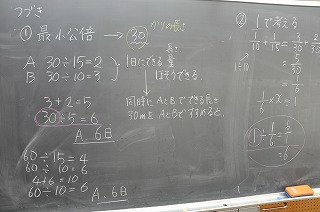 つづき
① 最小公倍 → 30 かりの長さ
A 30÷15=2
B 30÷10=3
長さ
1日にできる量
ほそうできる
3+2=5
30÷5=6
A. 6日
同時にAとBでできる長さ
30mをAとBですすめると、
60÷15=4
60÷10=6
4+6=10
60÷10=6
A. 6日
② 1で考える
1/10+1/15=3/30+2/30
1÷10
=5/30
=1/6
1/6×x=1
①÷1/6=6/1
=6